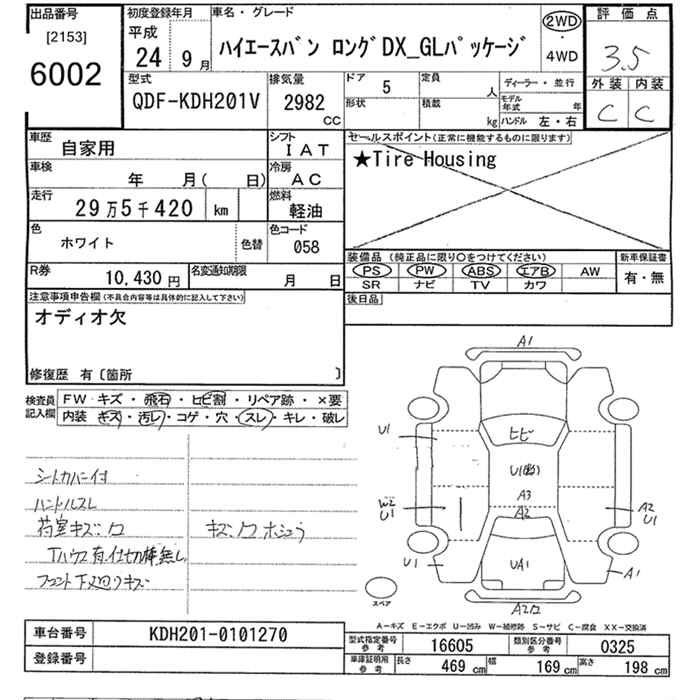 出品番号
[2153]
6002
初度登録年月
平成
24年9月
車名・グレード
ハイエースバン ロングDX_GLパッケージ
2WD
・
4WD
評価点
3.5
外装 内装
C C
型式
QDF-KDH201V
排気量
2982
CC
ドア
5
定員
人
形状
積載
kg
ディーラー・並行
モデル年式 年
ハンドル 左・右
車歴
自家用
シフト
IAT
車検
年 月( 日)
冷房
AC
走行
29万5千420 km
燃料
軽油
色
ホワイト
色替
色コード
058
R券
10,430 円
名変通知期限
月 日
セールスポイント(正常に機能するものに限ります)
★Tire Housing
装備品 (純正品に限り○をつけてください)
PS PW ABS エアB AW
SR ナビ TV カワ
新車保証書
有・無
後日品
注意事項申告欄(不具合内容等は具体的に記入して下さい)
オーディオ欠
修復歴 有〔箇所 〕
検査員
記入欄
FW キズ・飛石・ヒビ割・リペア跡・×要
内装 キズ・汚レ・コゲ・穴・スレ・キレ・破レ
シートカバー付
ハンドルスレ
荷室キズ・凹
キズ・凹 ホシュウ
Tハウス有・仕切棒無し
フロント下廻りキズ
A1
U1
ヒビ
U1
A3
A2
W2
U1
A2
U1
U1
UA1
A1
A2凹
スペア
A-キズ E-エクボ U-凹み W-補修跡 S-サビ C-腐食 XX-交換済
車台番号
KDH201-0101270
登録番号
型式指定番号
参考
16605
類別区分番号
参考
0325
車庫証明用
参考
長さ 469 cm
幅 169 cm
高さ 198 cm